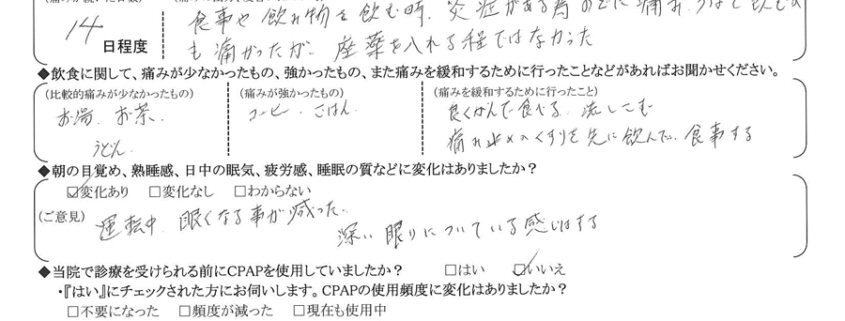 14 日程度
食事や飲み物を飲む時、炎症がある為のどに痛み、
も痛かったが、座薬を入れる程ではなかった
◆飲食に関して、痛みが少なかったもの、強かったもの、また痛みを緩和するために行ったことなどがあればお聞かせください。
(比較的痛みが少なかったもの)
お湯、お茶、
うどん
(痛みが強かったもの)
コーヒー、ごはん、
(痛みを緩和するために行ったこと)
良くかんで食べる、流しこむ
痛み止めのくすりを先に飲んだ、食事する
◆朝の目覚め、熟睡感、日中の眠気、疲労感、睡眠の質などに変化はありましたか?
☑変化あり □変化なし □わからない
(ご意見) 運転中、眠くなる事が減った、
深い眠りについている感じはする
◆当院で診療を受けられる前にCPAPを使用していましたか? □はい ☑いいえ
・『はい』にチェックされた方にお伺いします。CPAPの使用頻度に変化はありましたか?
□不要になった □頻度が減った □現在も使用中